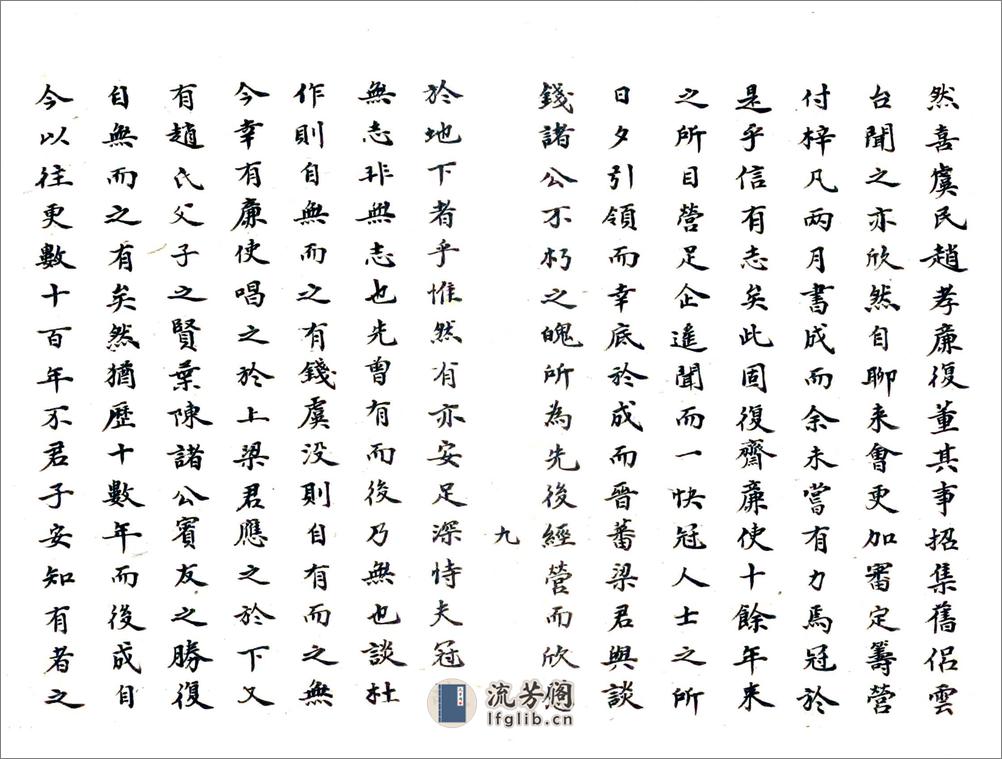 然喜虞民趙孝廉復董其事招集舊侣雲
台聞之亦欣然自聊来會更加審定籌營
付梓凡两月書成而余未嘗有力焉冠於
是乎信有志矣此固復齋廉使十餘年来
之所目營足企遥聞而一快冠人士之所
日夕引領而幸底於成而晉蕃梁君與談
錢諸公不朽之魄所為先後經營而欣
九
於地下者乎惟然有亦安足深恃夫冠
無志非無志也先曾有而後乃無也談杜
作則自無而之有錢虞没則自有而之無
今幸有廉使唱之於上梁君應之於下又
有趙氏父子之賢葉陳諸公賓友之勝復
自無而之有矣然猶歷十數年而後成自
今以往更數十百年不君子安知有者之
流芳阁
lfglib.cn